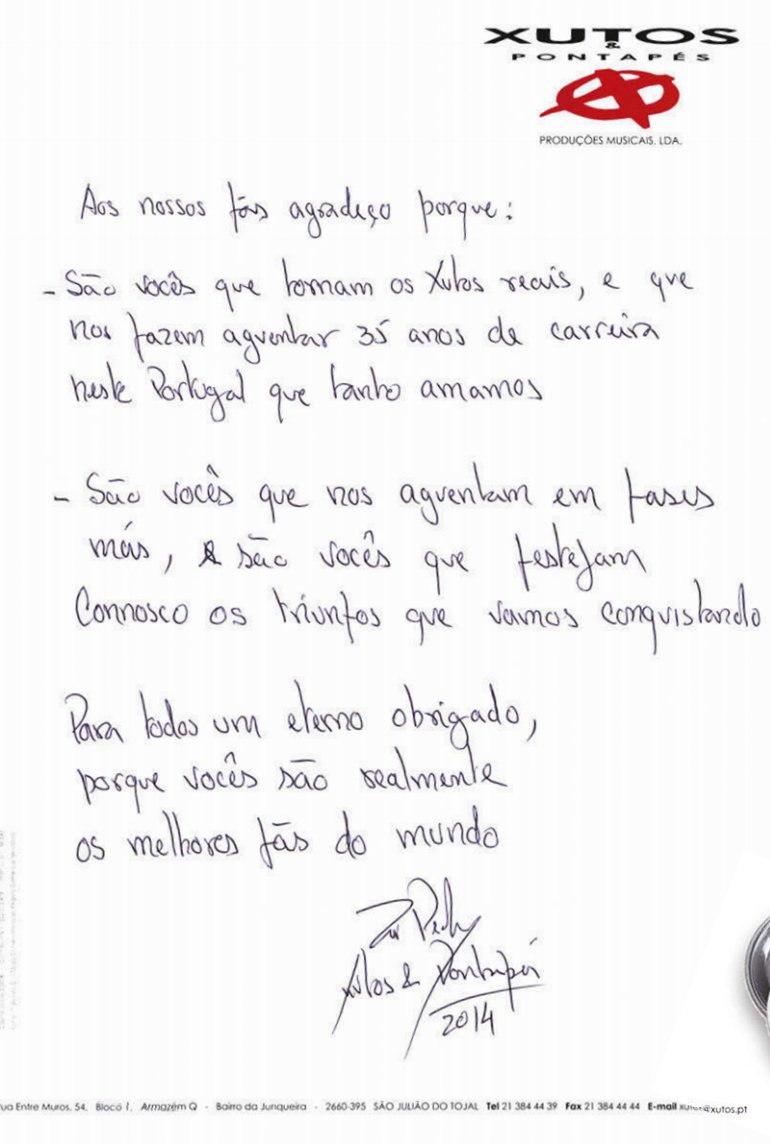 XUTOS
&
PONTAPÉS
PRODUÇÕES MUSICAIS, LDA.
Aos nossos fãs agradeço porque:
- São vocês que tornam os Xutos reais, e que
nos fazem aguentar 35 anos de carreira
neste Portugal que tanto amamos
- São vocês que nos aguentam em fases
más, e são vocês que festejam
connosco os triunfos que vamos conquistando
Para todos um eterno obrigado,
porque vocês são realmente
os melhores fãs do mundo
Zé Pedro
Xutos & Pontapés
2014
ua Entre Muros, 54, Bloco 1, Armazém Q - Bairro da Junqueira - 2660-395 SÃO JULIÃO DO TOJAL Tel 21 384 44 39 Fax 21 384 44 44 E-mail xutos@xutos.pt